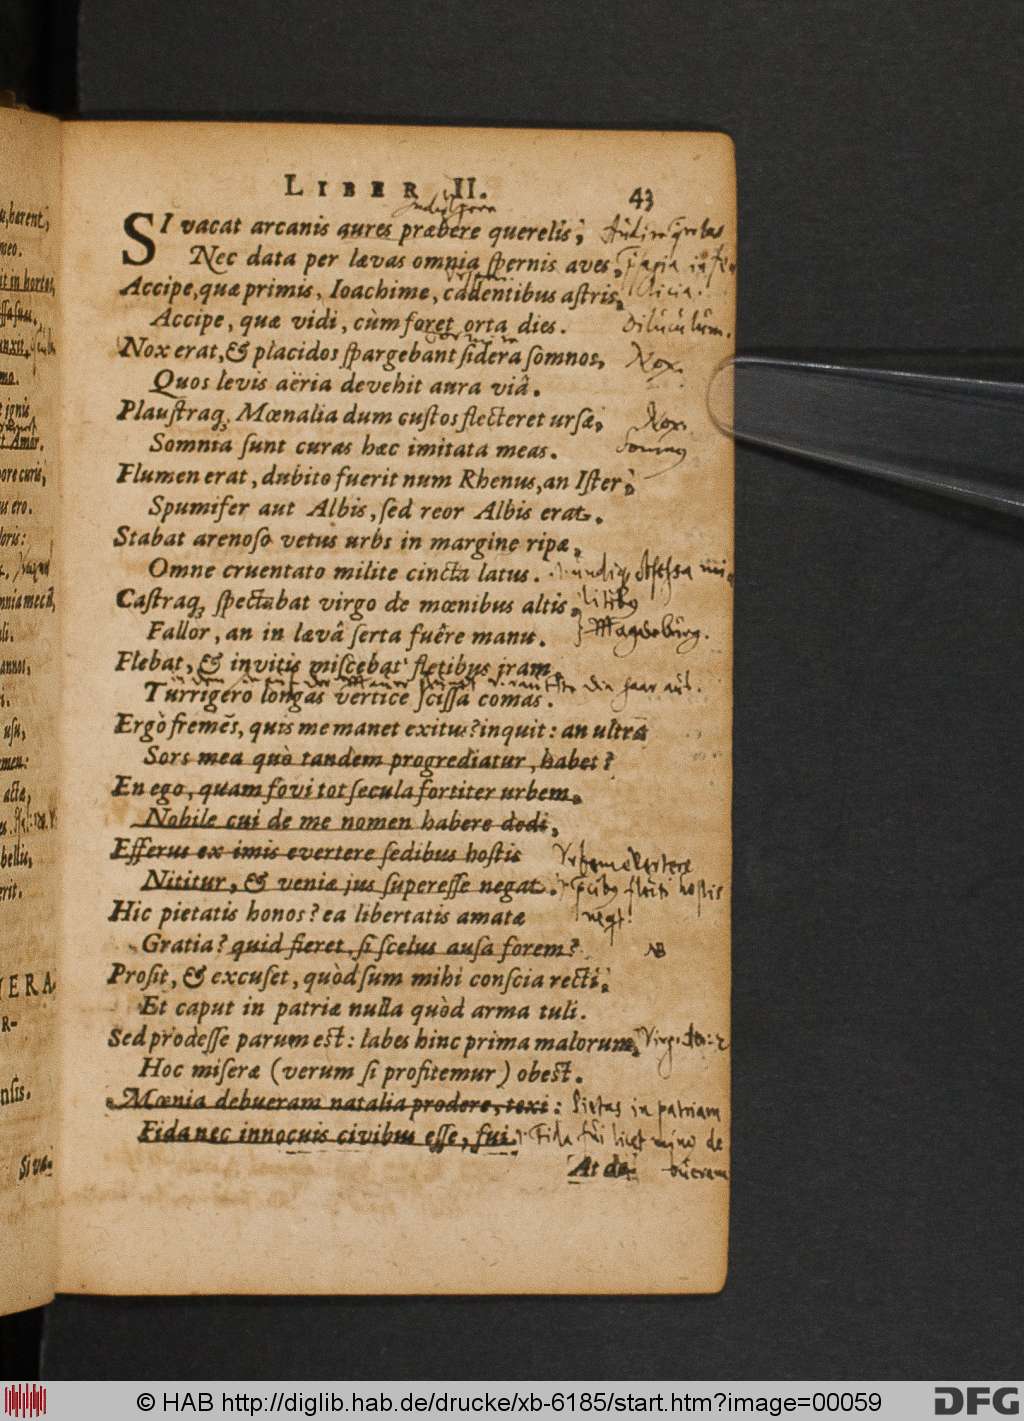 LIBER II. 43
SI vacat arcanis aures præbere querelis;
Nec data per lævas omnia spernis aves;
Accipe, quæ primis, Ioachime, cadentibus astris,
Accipe, quæ vidi, cùm foret orta dies.
Diluculum.
Nox erat, & placidos spargebant sidera somnos,
Nox.
Quos levis aëria devehit aura viâ.
Plaustraq; Mœnalia dum custos flecteret ursæ,
Nox.
Somnia sunt curas hæc imitata meas.
Flumen erat, dubito fuerit num Rhenus, an Ister;
Spumifer aut Albis, sed reor Albis erat.
Stabat arenoso vetus urbs in margine ripæ,
Omne cruentato milite cincta latus.
Castraq; spectabat virgo de mœnibus altis,
Fallor, an in lævâ serta fuêre manu.
Magdeburg.
Flebat, & invitis miscebat fletibus iram,
Turrigero longas vertice scissa comas.
Ergò fremēs, quis me manet exitus? inquit: an ultrà
Sors mea quò tandem progrediatur, habet?
En ego, quam fovi tot secula fortiter urbem,
Nobile cui de me nomen habere dedi,
Efferus ex imis evertere sedibus hostis
Nititur, & veniæ jus superesse negat.
Hic pietatis honos? ea libertatis amatæ
Gratia? quid fieret, si scelus ausa forem?
NB
Prosit, & excuset, quòd sum mihi conscia recti;
Et caput in patriæ nulla quòd arma tuli.
Sed prodesse parum est: labes hinc prima malorum,
Hoc miseræ (verum si profitemur) obest.
Mœnia debueram natalia prodere, texi:
Pietas in patriam
Fida nec innocuis civibus esse, fui.
Fida fui licet mino de
bueram
At de-
© HAB http://diglib.hab.de/drucke/xb-6185/start.htm?image=00059
DFG